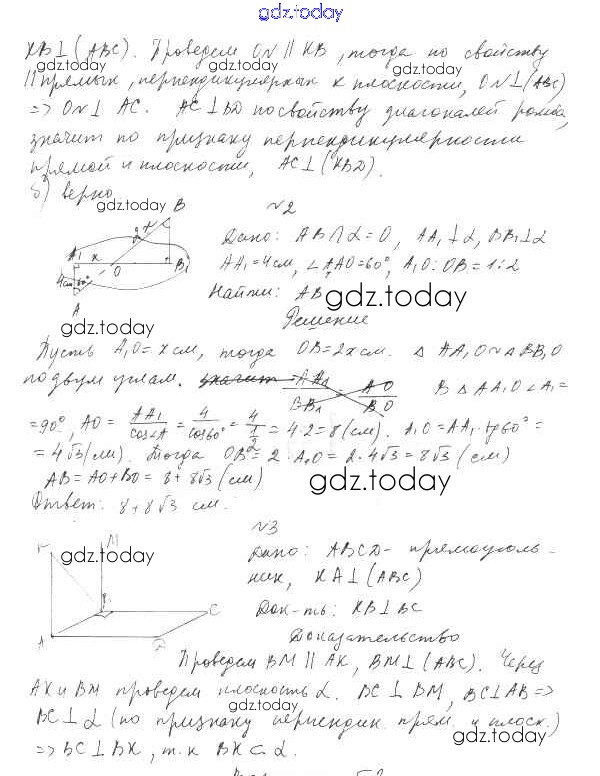 gdz.today
KB⊥(ABC). Проведем ON || KB, тогда по свойству
gdz.today gdz.today
|| прямых, перпендикулярных к плоскости, ON⊥(ABC)
=> ON⊥ AC. AC⊥BD по свойству диагоналей ромба,
значит по признаку перпендикулярности
прямой и плоскости, AC⊥(KBD).
б) верно
gdz.today
№2
B
2x
A₁ x O B₁
4см 60°
A
Дано: AB∩α=O, AA₁⊥α, BB₁⊥α
AA₁=4см, ∠A₁AO=60°, A₁O:OB=1:2
Найти: AB
gdz.today
gdz.today
Решение
Пусть A₁O=x см, тогда OB=2x см. △AA₁O∾△BB₁O
по двум углам. значит AA₁/BB₁ = AO/BO В △AA₁O ∠A₁=
=90°, AO = AA₁/cos∠A = 4/cos60° = 4/½ = 4·2=8(см). A₁O=AA₁·tg60°=
=4√3(см). Тогда OB=2·A₁O=2·4√3=8√3(см)
AB=AO+BO=8+8√3(см)
gdz.today
Ответ: 8+8√3 см.
№3
K M
gdz.today
B C
A D
Дано: ABCD- прямоуголь-
ник, KA⊥(ABC)
Док-ть: KB⊥BC
gdz.today
Доказательство
Проведем BM || AK, BM⊥(ABC). Через
gdz.today
AK и BM проведем плоскость α. BC⊥BM, BC⊥AB=>
gdz.today
BC⊥α (по признаку перпендик. прям. и плоск.)
gdz.today
=> BC⊥BK, т.к BK⊂α.